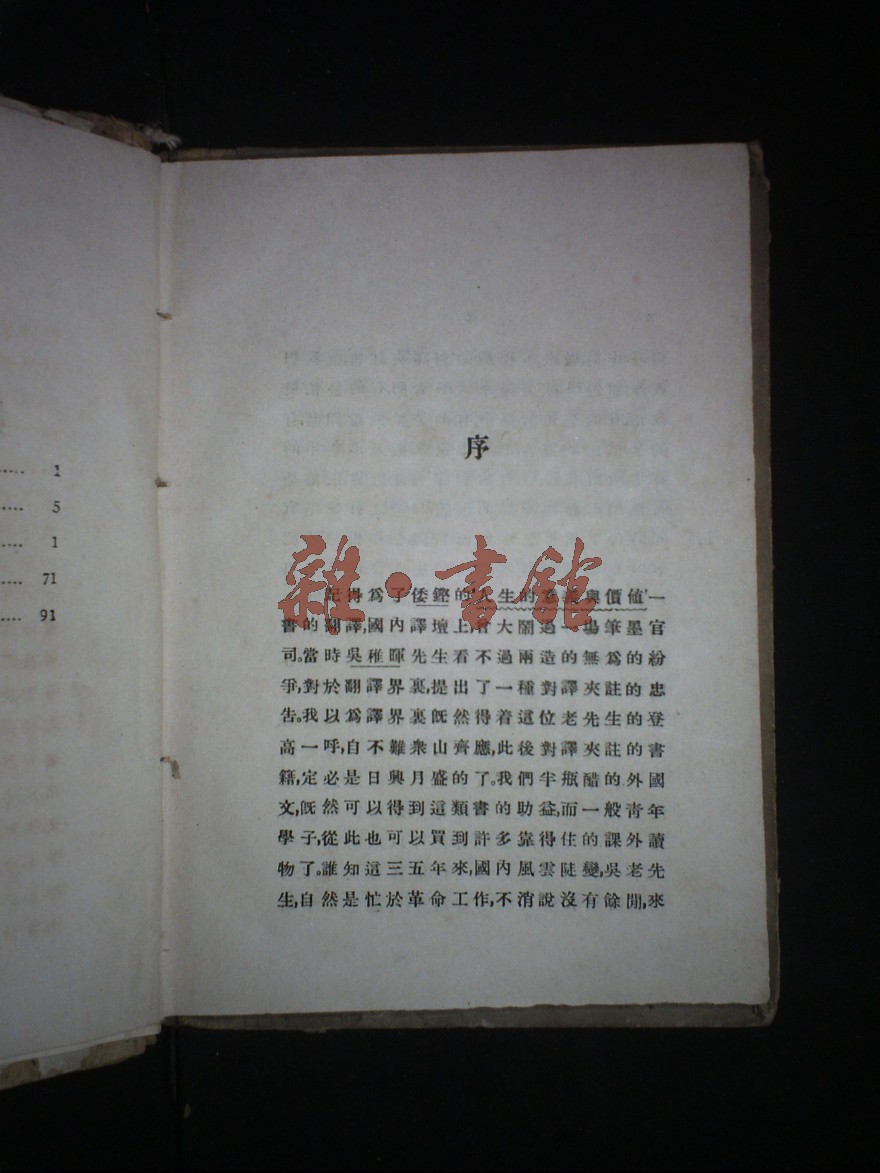 ..... 1
..... 5
..... 1
..... 71
..... 91
序
雜·書館
記得爲了倭鏗的'人生的意義與價值'一
書的翻譯,國內譯壇上,曾大鬧過一場筆墨官
司。當時吳稚暉先生看不過兩造的無爲的紛
爭,對於翻譯界裏,提出了一種對譯夾註的忠
告。我以爲譯界裏旣然得着這位老先生的登
高一呼,自不難衆山齊應,此後對譯夾註的書
籍,定必是日興月盛的了。我們半瓶醋的外國
文,旣然可以得到這類書的助益,而一般靑年
學子,從此也可以買到許多靠得住的課外讀
物了。誰知這三五年來,國內風雲陡變,吳老先
生,自然是忙於革命工作,不消說沒有餘閒,來